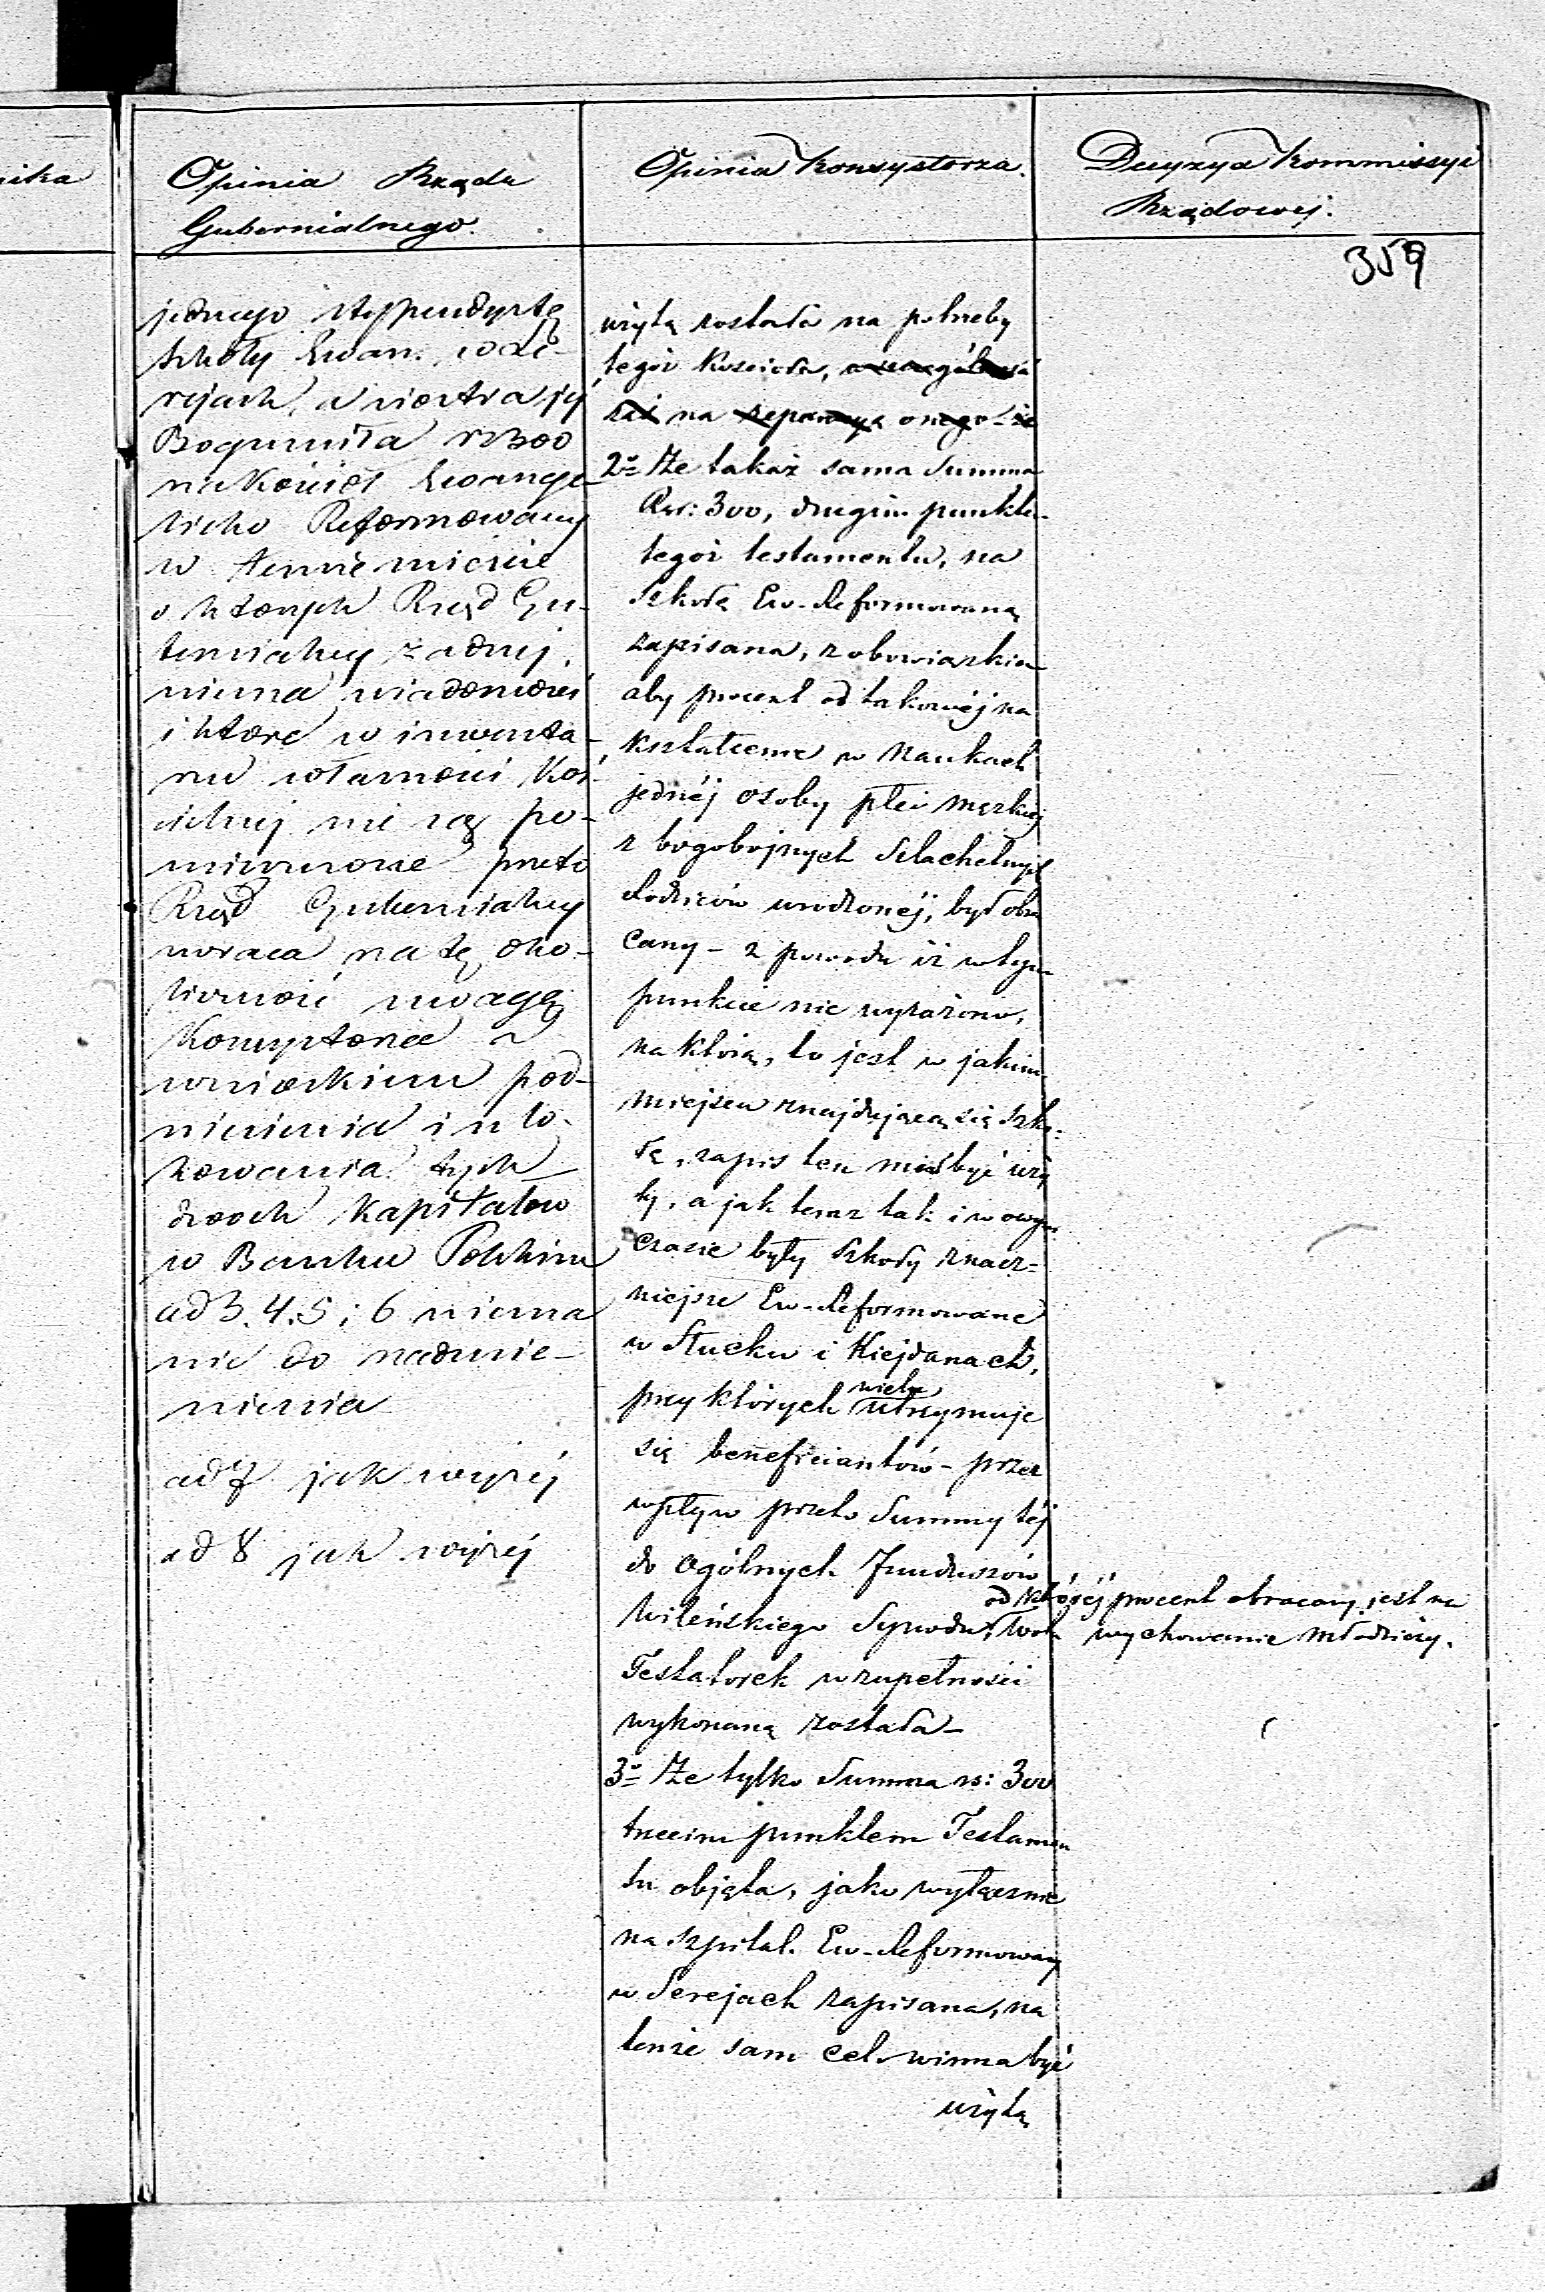 nika
Opinia Rządu
Gubernialnego.
jednego stypendystę
szkoły Ewan. w Se-
rejach, a siostra jéj
Bogumiła rs 300
na Kościół Ewange-
licko Reformowany
w temże mieście
o których Rząd Gu-
bernialny żadnej
niema wiadomości
i które w inwenta-
rzu własności Koś-
cielnej nie są po-
mieszczone przeto
Rząd Gubernialny
zwraca na tę oko-
liczność uwagę
Konsystorza z
wnioskiem pod-
niesienia i ulo-
kowania tych
dwóch kapitałów
w Banku Polskim
ad 3. 4. 5 i 6 niema
nic do nadmie-
nienia
ad 7 jak wyżéj
ad 8 jak wyżéj
Opinia Konsystorza.
użytą została na potrzeby
tegoż Kościoła, a szczególności
zaś na reparacyą onego - że
2o Że takaż sama Summa
Rsr: 300, drugim punktem
tegoż testamentu, na
Szkołę Ew-Reformowaną
zapisana, z obowiązkiem
aby procent od takowéj na
kształcenie w Naukach
jednéj osoby płci męzkiéj
z bogobojnych Szlachetnych
Rodziców urodzonéj, był obra
cany - z powodu iż w tym
punkcie nie wyrażono,
na którą, to jest w jakim
miejscu znajdującą się Szko-
łę, zapis ten miał być uży
ty, a jak teraz tak i w owym
czasie były Szkoły znacz-
niejsze Ew-Reformowane
w Słucku i Kiejdanach,
wielu
przy których utrzymuje
się beneficiantów - przez
wpływ przeto Summy téj
do Ogólnych Funduszów
od któréj procent obracany jest na
Wileńskiego Synodu, wola wychowanie młodzieży.
Testatorek w zupełności
wykonaną została -
3o Że tylko Summa rs: 300
trzecim punktem Testamen
tu objęta, jako wyłącznie
na Szpital Ew-Reformowany
w Serejach zapisana, na
tenże sam cel winna być
użytą
Decyzya Kommissyi
Rządowéj.
359